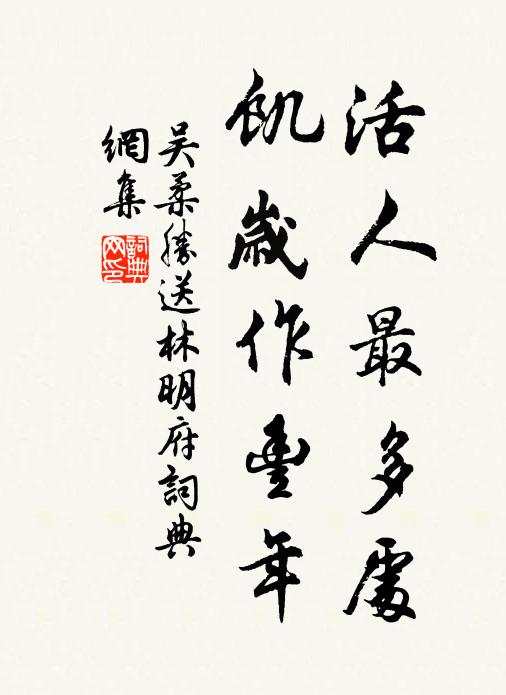 活人最多處
飢歲作豐年
吳柔勝送林明府詞典
網集
詞典
网印